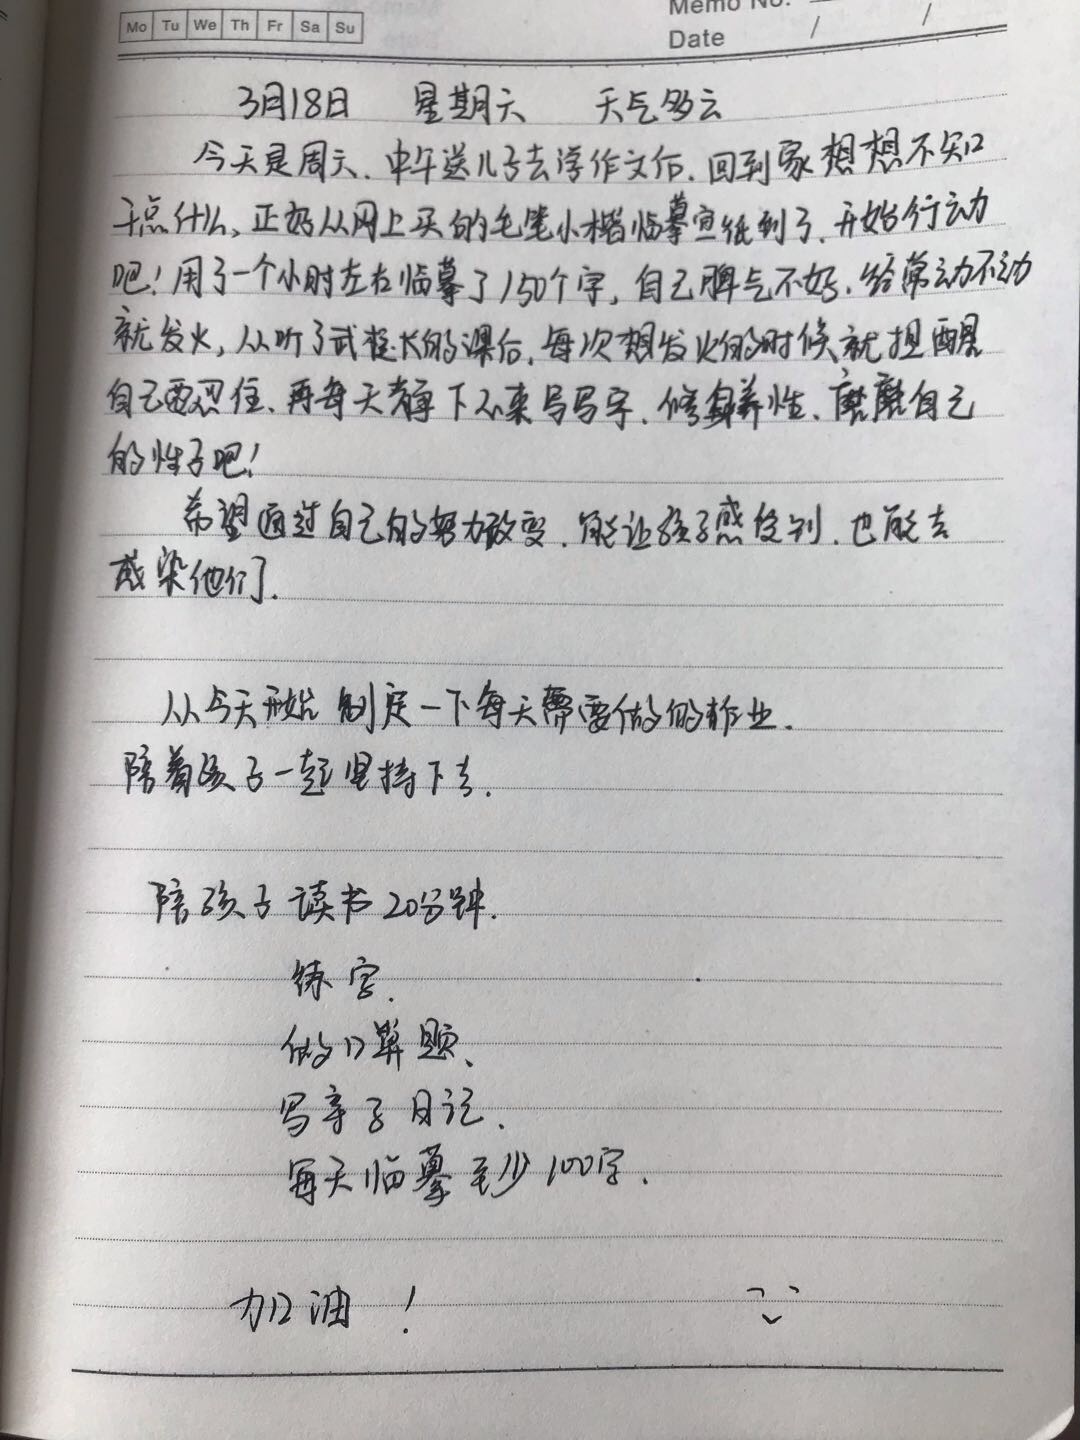 Mo Tu We Th Fr Sa Su
Memo No.
Date / /
3月18日 星期六 天气多云
今天是周六、中午送儿子去学作文后、回到家想想不知
干点什么、正好从网上买的毛笔小楷临摹宣纸到了、开始行动
吧！用了一个小时左右临摹了150个字，自己脾气不好、经常动不动
就发火，从听了武校长的课后、每次想发火的时候就提醒
自己要忍住、再每天静下心来写写字、修身养性、磨磨自己
的性子吧！
希望通过自己的努力改变、能让孩子感受到、也能去
感染他们.
从今天开始 制定一下每天需要做的作业.
陪着孩子一起坚持下去.
陪孩子读书20分钟.
练字.
做口算题、
写亲子日记.
每天临摹至少100字.
加油！